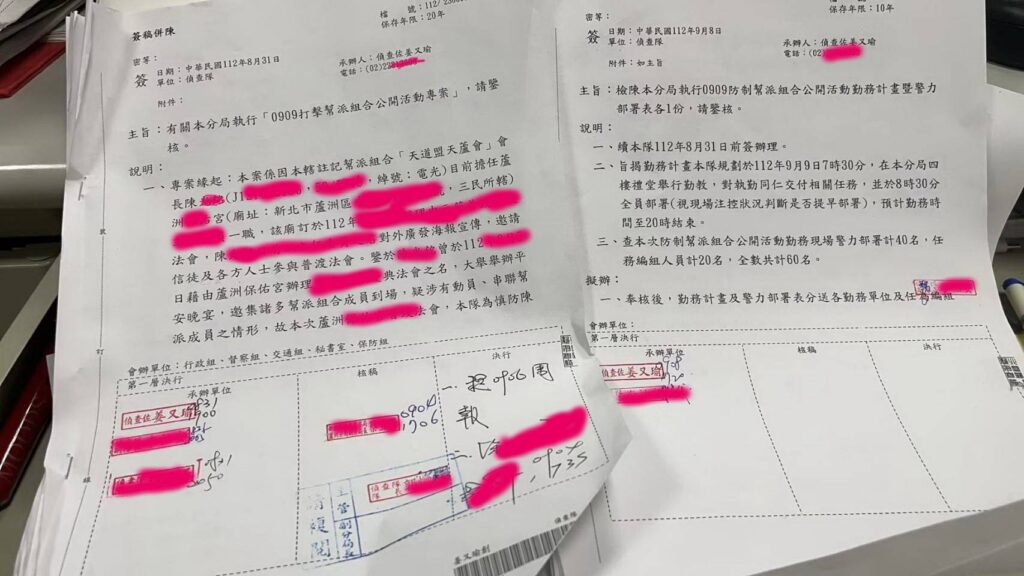 檔　號：112/
保存年限：20年
簽稿併陳
密等：
簽
日期：中華民國112年8月31日
單位：偵查隊
承辦人：偵查佐姜又瑜
電話：(02)
附件：
主旨：有關本分局執行「0909打擊幫派組合公開活動專案」，請鑒
核。
說明：
一、專案緣起：本案係因本轄註記幫派組合「天道盟天蘆會」會
長陳 (J1 ，綽號：電光)目前擔任蘆
洲 宮(廟址：新北市蘆洲區 ，三民所轄)
一職，該廟訂於112年
法會，陳 對外廣發海報宣傳，邀請
信徒及各方人士參與普渡法會。鑒於 曾於112
日藉由蘆洲保佑宮辦理 典法會之名，大舉舉辦平
安晚宴，邀集諸多幫派組合成員到場，疑涉有動員、串聯幫
派成員之情形，故本次蘆洲 法會，本隊為慎防陳
會辦單位：行政組、督察組、交通組、秘書室、保防組
第一層決行
承辦單位
核稿
決行
偵查佐姜又瑜
0831
偵查隊
一、提0906周
報
二、
主管
副分局長
裝
訂
線
偵查隊
姜又瑜創
保存年限：10年
密等：
簽
日期：中華民國112年9月8日
單位：偵查隊
承辦人：偵查佐姜又瑜
電話：(02)
附件：如主旨
主旨：檢陳本分局執行0909防制幫派組合公開活動勤務計畫暨警力
部署表各1份，請鑒核。
說明：
一、續本隊112年8月31日前簽辦理。
二、旨揭勤務計畫本隊規劃於112年9月9日7時30分，在本分局四
樓禮堂舉行勤教，對執勤同仁交付相關任務，並於8時30分
全員部署(視現場注控狀況判斷是否提早部署)，預計勤務時
間至20時結束。
三、查本次防制幫派組合公開活動勤務現場警力部署計40名，任
務編組人員計20名，全數共計60名。
擬辦：
一、奉核後，勤務計畫及警力部署表分送各勤務單位及任務編組
會辦單位：
第一層決行
承辦單位
核稿
決行
偵查佐姜又瑜